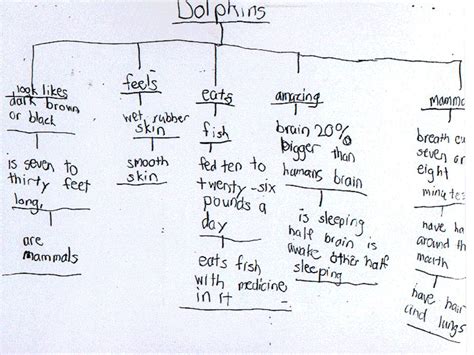 Dolphins
look likes
dark brown
or black
is seven to
thirty feet
long,
are
mammals
feels
wet, rubber
skin
smooth
skin
eats
fish
fed ten to
twenty-six
pounds a
day
eats fish
with medicine
in it
amazing
brain 20%
bigger than
humans brain
is sleeping
half brain is
awake other half
sleeping
breath
seven or
eight
minutes
have
around th
mouth
have hair
and lungs